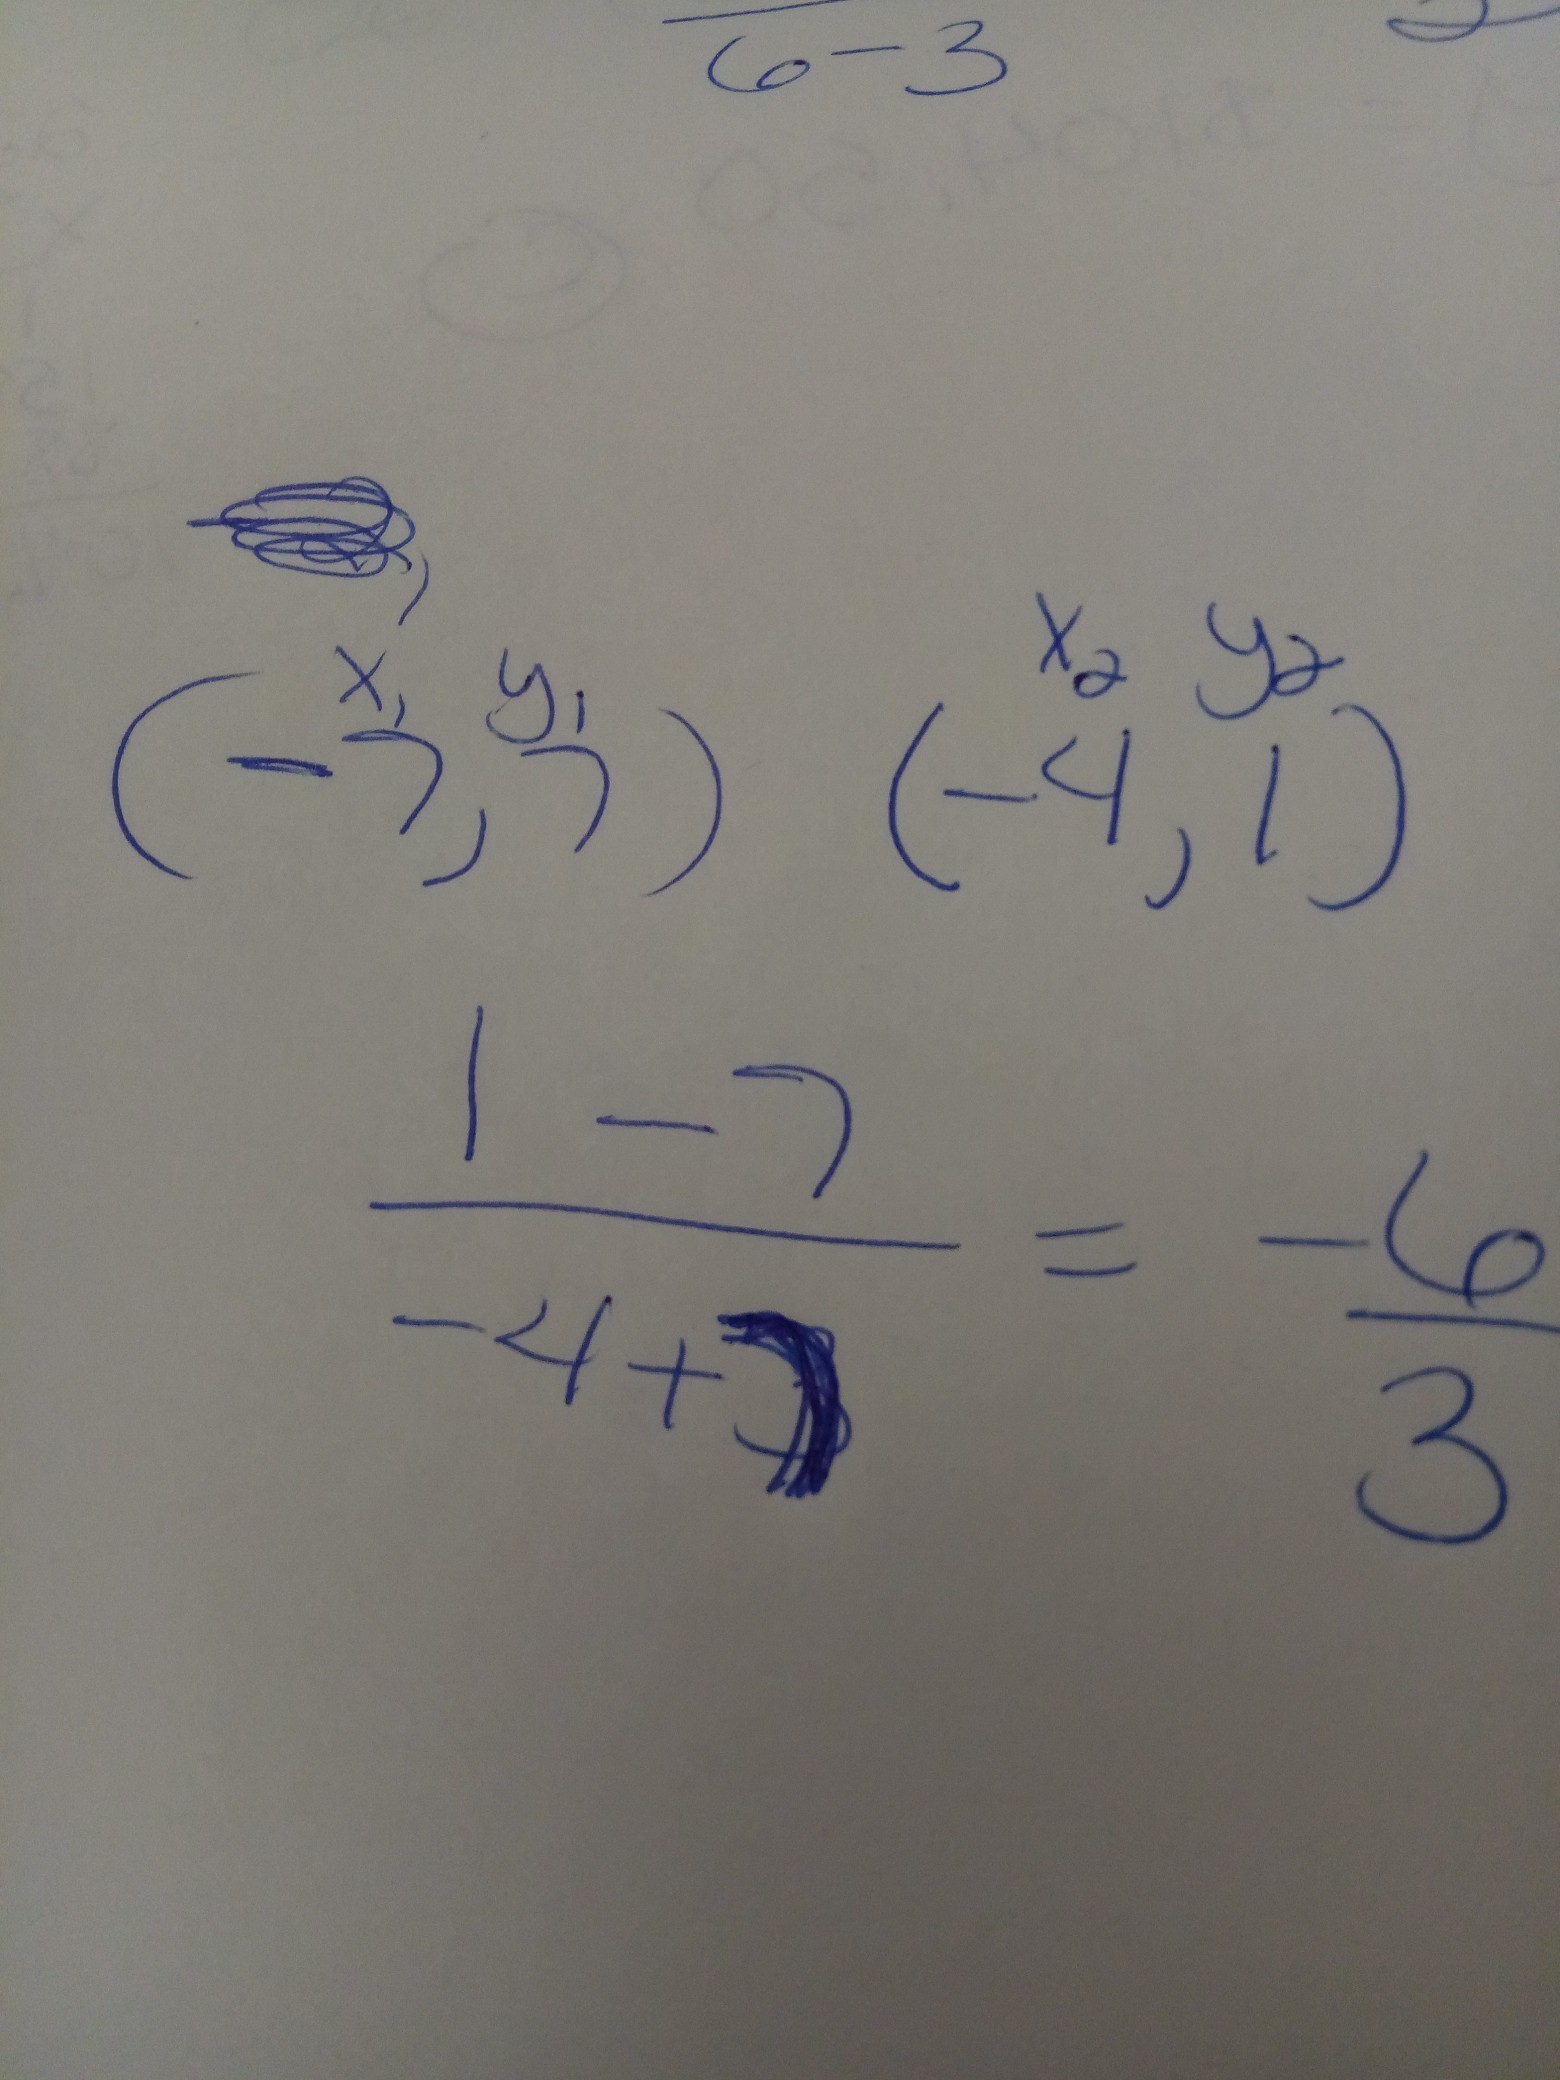 6-3
x₁ y₁ x₂ y₂
(-7,7) (-4,1)
1-7
-4+7
=
-6
3